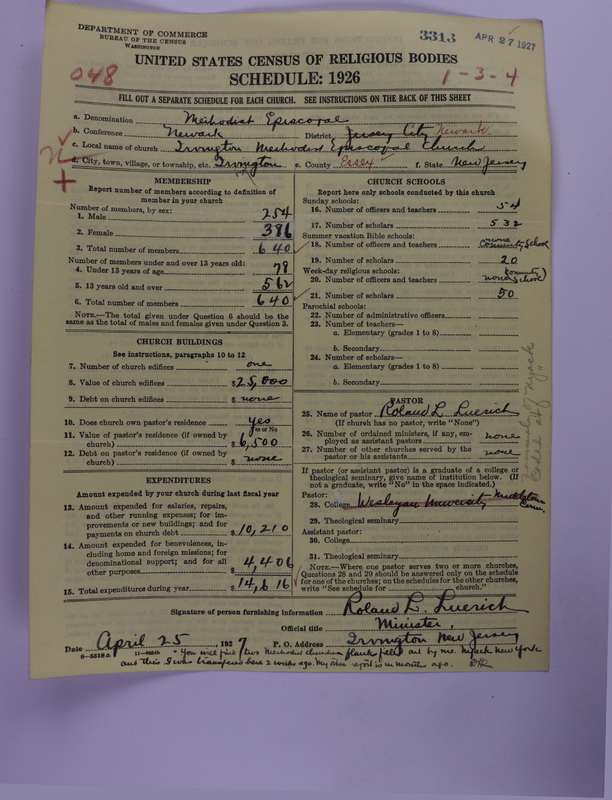 DEPARTMENT OF COMMERCE
BUREAU OF THE CENSUS
WASHINGTON
3313
APR 27 1927
UNITED STATES CENSUS OF RELIGIOUS BODIES
048
SCHEDULE: 1926
1-3-4
FILL OUT A SEPARATE SCHEDULE FOR EACH CHURCH. SEE INSTRUCTIONS ON THE BACK OF THIS SHEET
a. Denomination Methodist Episcopal
b. Conference Newark District Jersey City Newark
c. Local name of church Irvington Methodist Episcopal Church
d. City, town, village, or township, etc. Irvington e. County Essex f. State New Jersey
MEMBERSHIP
Report number of members according to definition of
member in your church
Number of members, by sex:
1. Male 254
2. Female 386
3. Total number of members 640
Number of members under and over 13 years old:
4. Under 13 years of age 78
5. 13 years old and over 562
6. Total number of members 640
NOTE.—The total given under Question 6 should be
the same as the total of males and females given under Question 3.
CHURCH BUILDINGS
See instructions, paragraphs 10 to 12
7. Number of church edifices one
8. Value of church edifices $25,000
9. Debt on church edifices $ none
10. Does church own pastor's residence? yes
Yes or No
11. Value of pastor's residence (if owned by
church) $ 6,500
12. Debt on pastor's residence (if owned by
church) $ none
EXPENDITURES
Amount expended by your church during last fiscal year
13. Amount expended for salaries, repairs,
and other running expenses; for im-
provements or new buildings; and for
payments on church debt $10,210
14. Amount expended for benevolences, in-
cluding home and foreign missions; for
denominational support; and for all
other purposes $ 4,406
15. Total expenditures during year $ 14,616
CHURCH SCHOOLS
Report here only schools conducted by this church
Sunday schools:
16. Number of officers and teachers 54
17. Number of scholars 532
Summer vacation Bible schools:
18. Number of officers and teachers Community School
19. Number of scholars 20
Week-day religious schools: (Community
20. Number of officers and teachers none School)
21. Number of scholars 50
Parochial schools:
22. Number of administrative officers
23. Number of teachers—
a. Elementary (grades 1 to 8)
b. Secondary
24. Number of scholars—
a. Elementary (grades 1 to 8)
b. Secondary
PASTOR
25. Name of pastor Roland L. Luerich
(If church has no pastor, write "None")
26. Number of ordained ministers, if any, em-
ployed as assistant pastors none
27. Number of other churches served by the
pastor or his assistants none
If pastor (or assistant pastor) is a graduate of a college or
theological seminary, give name of institution below. (If
not a graduate, write "No" in the space indicated.)
Pastor:
28. College Wesleyan University Middletown Conn.
29. Theological seminary
Assistant pastor:
30. College
31. Theological seminary
NOTE.—Where one pastor serves two or more churches,
Questions 28 and 29 should be answered only on the schedule
for one of the churches; on the schedules for the other churches,
write "See schedule for church."
Signature of person furnishing information Roland L. Luerich
Official title Minister,
Date April 25, 1927 P. O. Address Irvington New Jersey
8—5518a
You will find two Methodist churches blanks filled out by me. Nyack New York
and this I was transfered here 2 weeks ago. My other report is in months ago. RLL